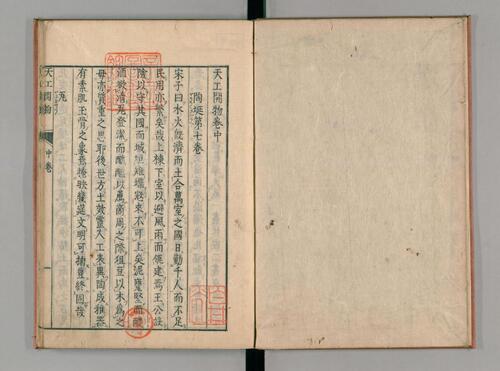 天工開物卷中
陶埏第七卷
宋子曰水火既濟而土合萬室之國日勤千人而不足
民用亦繁矣哉上棟下室以避風雨而瓴建焉王公設
險以守其國而城垣雉堞寇來不可上矣泥甕堅而醴
酒欲清瓦登潔而醯醢以薦商周之際俎豆以木為之
毋亦質重之思耶後世方土效靈人工表異陶成雅器
有素肌玉骨之象焉掩映幾筵文明可掬豈終固哉
瓦
天工開物
中卷
一